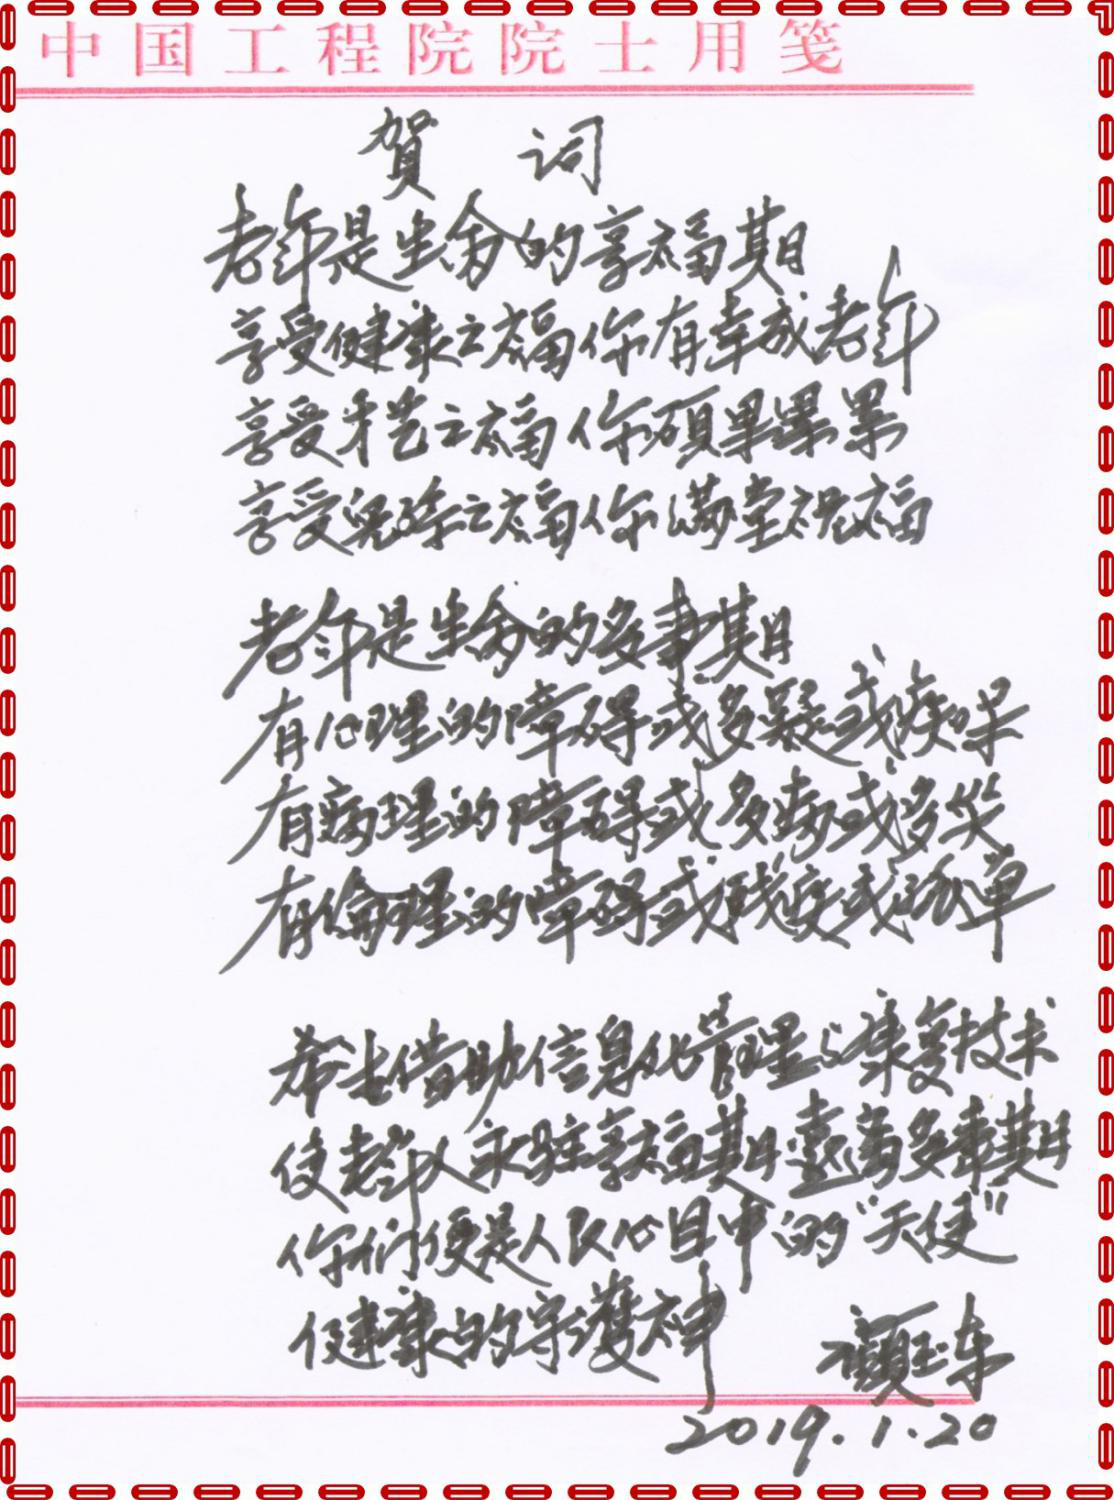 中国工程院院士用笺
賀 词
老年是生命的享福期
享受健康之福你有幸成老年
享受才艺之福你硕果累累
享受免除之福你满堂祝福
老年是生命的多事期
有心理的障碍或多疑或痴呆
有病理的障碍或多病或多災
有倫理的障碍或残疾或孤单
希望借助信息化管理与康复技术
使老年人永驻享福期 遠离多事期
你们便是人民心目中的“天使”
健康的守護神
顧玉东
2019.1.20